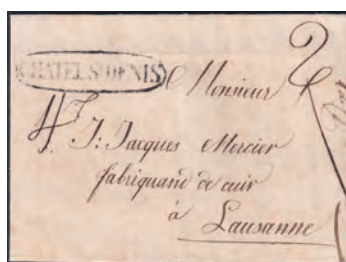 CHATEL ST DENIS
Monsieur
J: Jacques Mercier
fabriquand de cuir
à
Lausanne